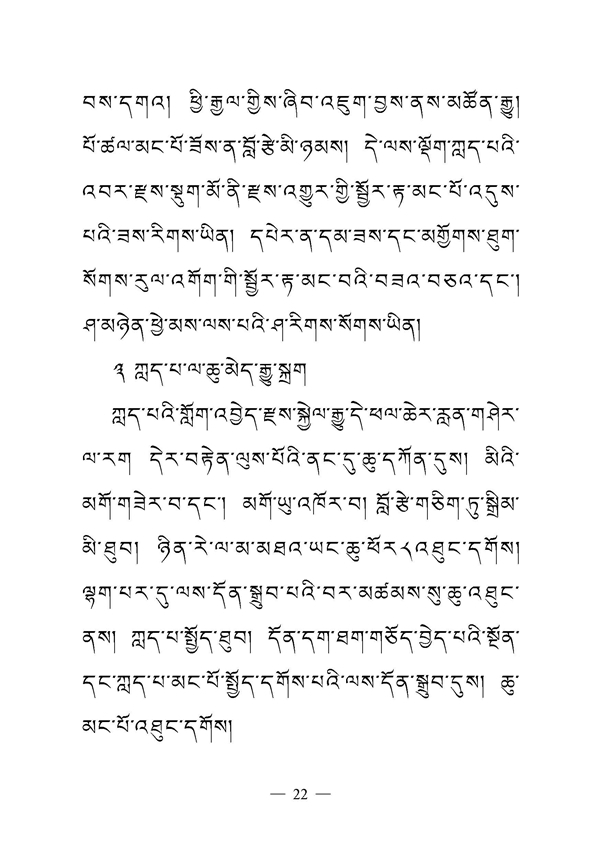 བས་དགའ།  ཕྱི་རྒྱལ་གྱིས་ཞིབ་འཇུག་བྱས་ནས་མཚོན་རྒྱུ།
པོ་ཚལ་མང་པོ་ཟོས་ན་བློ་རྩེ་མི་ཉམས།  དེ་ལས་ལྡོག་ཀླད་པའི་
འབར་རྫས་སྡུག་མོ་ནི་རྫས་འགྱུར་གྱི་སྦྱོར་རྟ་མང་པོ་འདུས་
པའི་ཟས་རིགས་ཡིན།  དཔེར་ན་དམ་ཟས་དང་མགྱོགས་ཐུག་
སོགས་རུལ་འགོག་གི་སྦྱོར་རྟ་མང་བའི་བཟའ་བཅའ་དང་།
ཤ་མཉེན་ཕྱེ་མས་ལས་པའི་ཤ་རིགས་སོགས་ཡིན།
༣ ཀླད་པ་ལ་ཆུ་མེད་རྒྱུ་སྐྲག
ཀླད་པའི་གློག་འབྱེད་རྫས་སྐྱེལ་རྒྱུ་དེ་ཕལ་ཆེར་རླན་གཤེར་
ལ་རག  དེར་བརྟེན་ལུས་པོའི་ནང་དུ་ཆུ་དཀོན་དུས།  མིའི་
མགོ་གཟེར་བ་དང་།  མགོ་ཡུ་འཁོར་བ། བློ་རྩེ་གཅིག་ཏུ་སྒྲིམ་
མི་ཐུབ།  ཉིན་རེ་ལ་མ་མཐའ་ཡང་ཆུ་ཕོར་༨འཐུང་དགོས།
ལྷག་པར་དུ་ལས་དོན་སྒྲུབ་པའི་བར་མཚམས་སུ་ཆུ་འཐུང་
ནས།  ཀླད་པ་སྤྱོད་ཐུབ།  དོན་དག་ཐག་གཅོད་བྱེད་པའི་སྔོན་
དང་ཀླད་པ་མང་པོ་སྤྱོད་དགོས་པའི་ལས་དོན་སྒྲུབ་དུས།  ཆུ་
མང་པོ་འཐུང་དགོས།
— 22 —